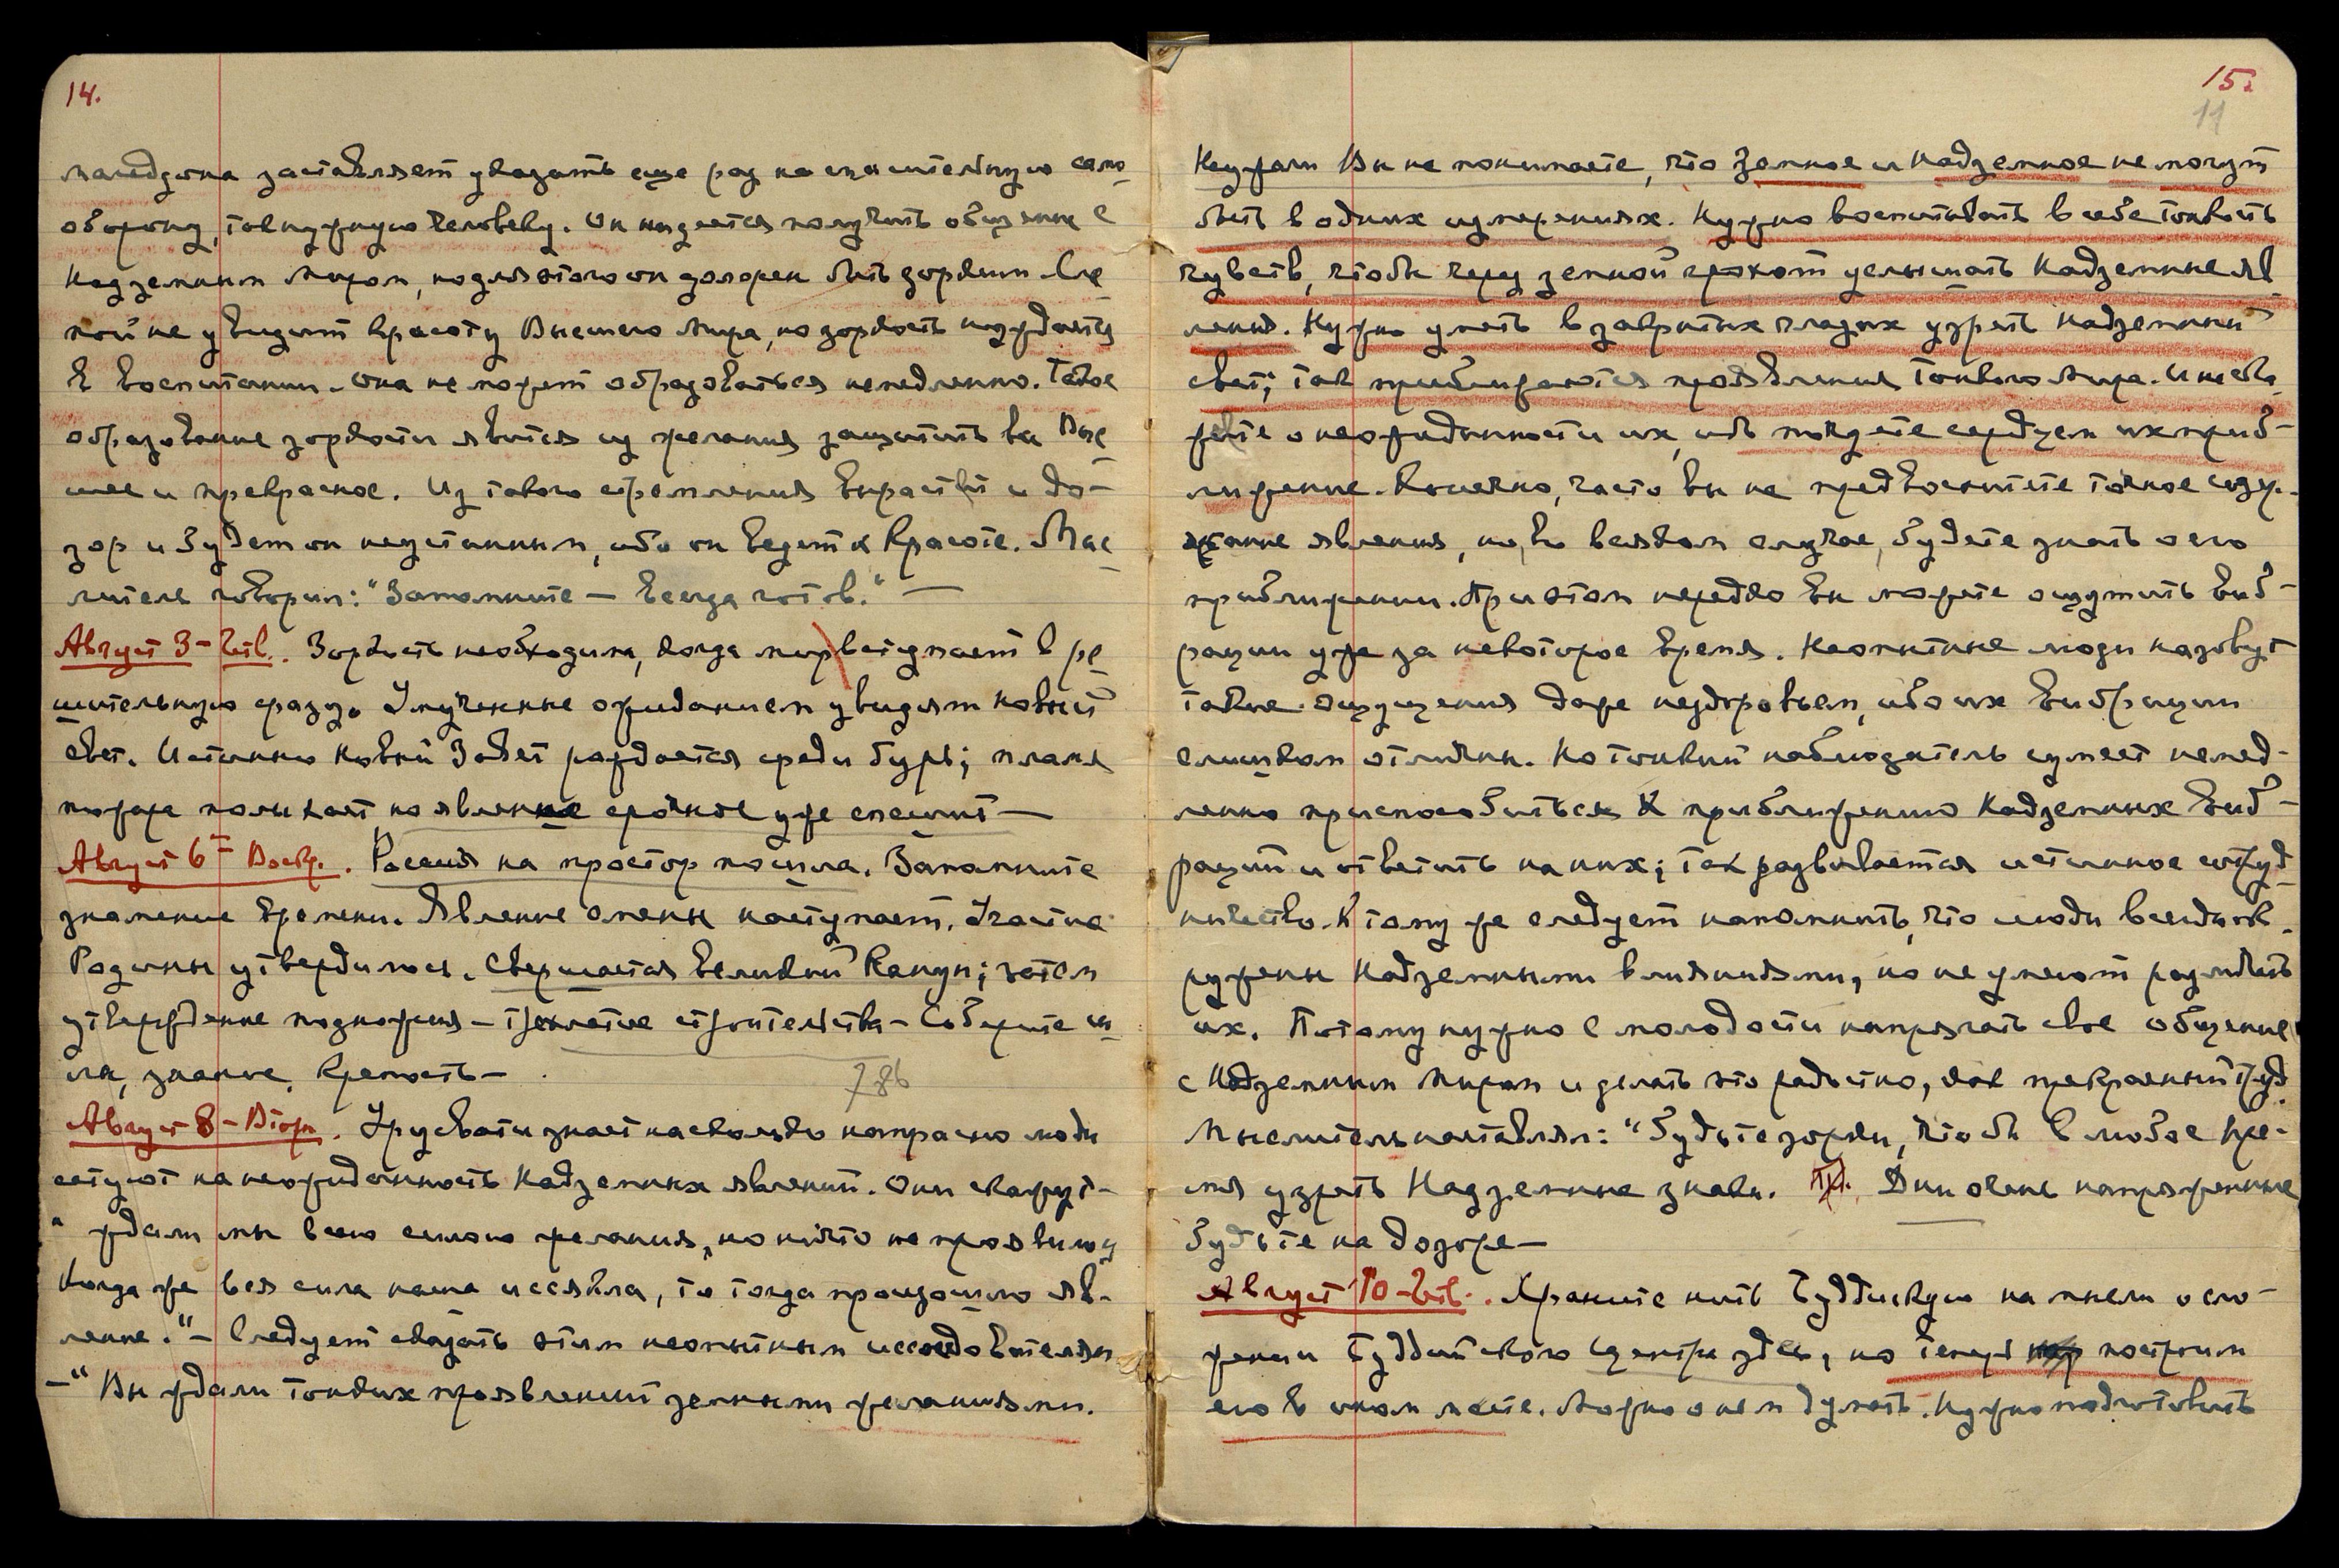 14.
заставляет указать еще раз на само-
оборону, так нужную человеку. Он надеется получить общение с
Надземным Миром, но для этого он должен быть зорким. Сле-
пой не увидит красоту Высшего Мира, но зоркость нуждается
в воспитании. Она не может образоваться немедленно. Такое
образование зоркости явится из желания защитить все Выс-
шее и прекрасное. Из такого стремления вырастет и до-
зор и будет он неустанным, ибо он ведет к Красоте. Мыс-
литель говорил: "Запомните — всегда готов." —
Август 3 – Четв. Зоркость необходима, когда мир вступает в ре-
шительную фразу. Измученные ожиданием увидят новый
свет. Истинно Новый Завет рождается среди бурь; пламя
пожара полыхает но явление срочное уже спешит —
Август 6 – Воскр. Россия на простор пошла. Запомните
знамение времени. Явление смены наступает. Участие
Родины утвердилось. Свершается Великий Канун; затем
утверждение подножия – трехлетие строительства – Соберите си-
лы, знание, крепость –
786
Август 8 – Вторн. Урусвати знает насколько напрасно люди
сетуют на неожиданность Надземных явлений. Они скажут –
" ждали мы всею силою желания, но ничто не проявилось
Когда же вся сила наша иссякла, то тогда произошло яв-
ление." – Следует сказать этим неопытным исследователям
– "Вы ждали тонких проявлений земными желаниями.
15.
11
Неужели Вы не понимаете, что земное и Надземное не могут
быть в одних измерениях. Нужно воспитывать в себе тонкость
чувств, чтобы через земной грохот услышать Надземные яв-
ления. Нужно уметь в закрытых глазах узреть надземный
свет; так приближаются проявления Тонкого Мира. И не ска-
жете о неожиданности их, ибо почуете сердцем их приб-
лижение. Конечно, часто вы не предвосхитите точное содер-
жание явления, но, во всяком случае, будете знать о его
приближении. При этом нередко вы можете ощутить виб-
рации уже за некоторое время. Неопытные люди назовут
такие ощущения даже нездоровьем, ибо их вибрации
слишком отличны. Но тонкий наблюдатель сумеет немед-
ленно приспособиться к приближению Надземных виб-
раций и ответить на них; так развивается истинное сотруд-
ничество. К тому же следует напомнить, что люди всегда ок-
ружены Надземными влияниями, но не умеют различать
их. Потому нужно с молодости напрягать свое общение
с Надземным Миром и делать это радостно, как прекрасный труд.
Мыслитель наставлял: "Будьте зорки, чтобы в любое вре-
мя узреть Надземные знаки. Дни очень напряженные
будьте на дозоре –
Август 10 – Четв. Храните нить Буддийскую на мысли о сло-
жении Буддийского Центра здесь, но теперь построим
его в ином месте. Можно о нем думать. Нужно подготовить